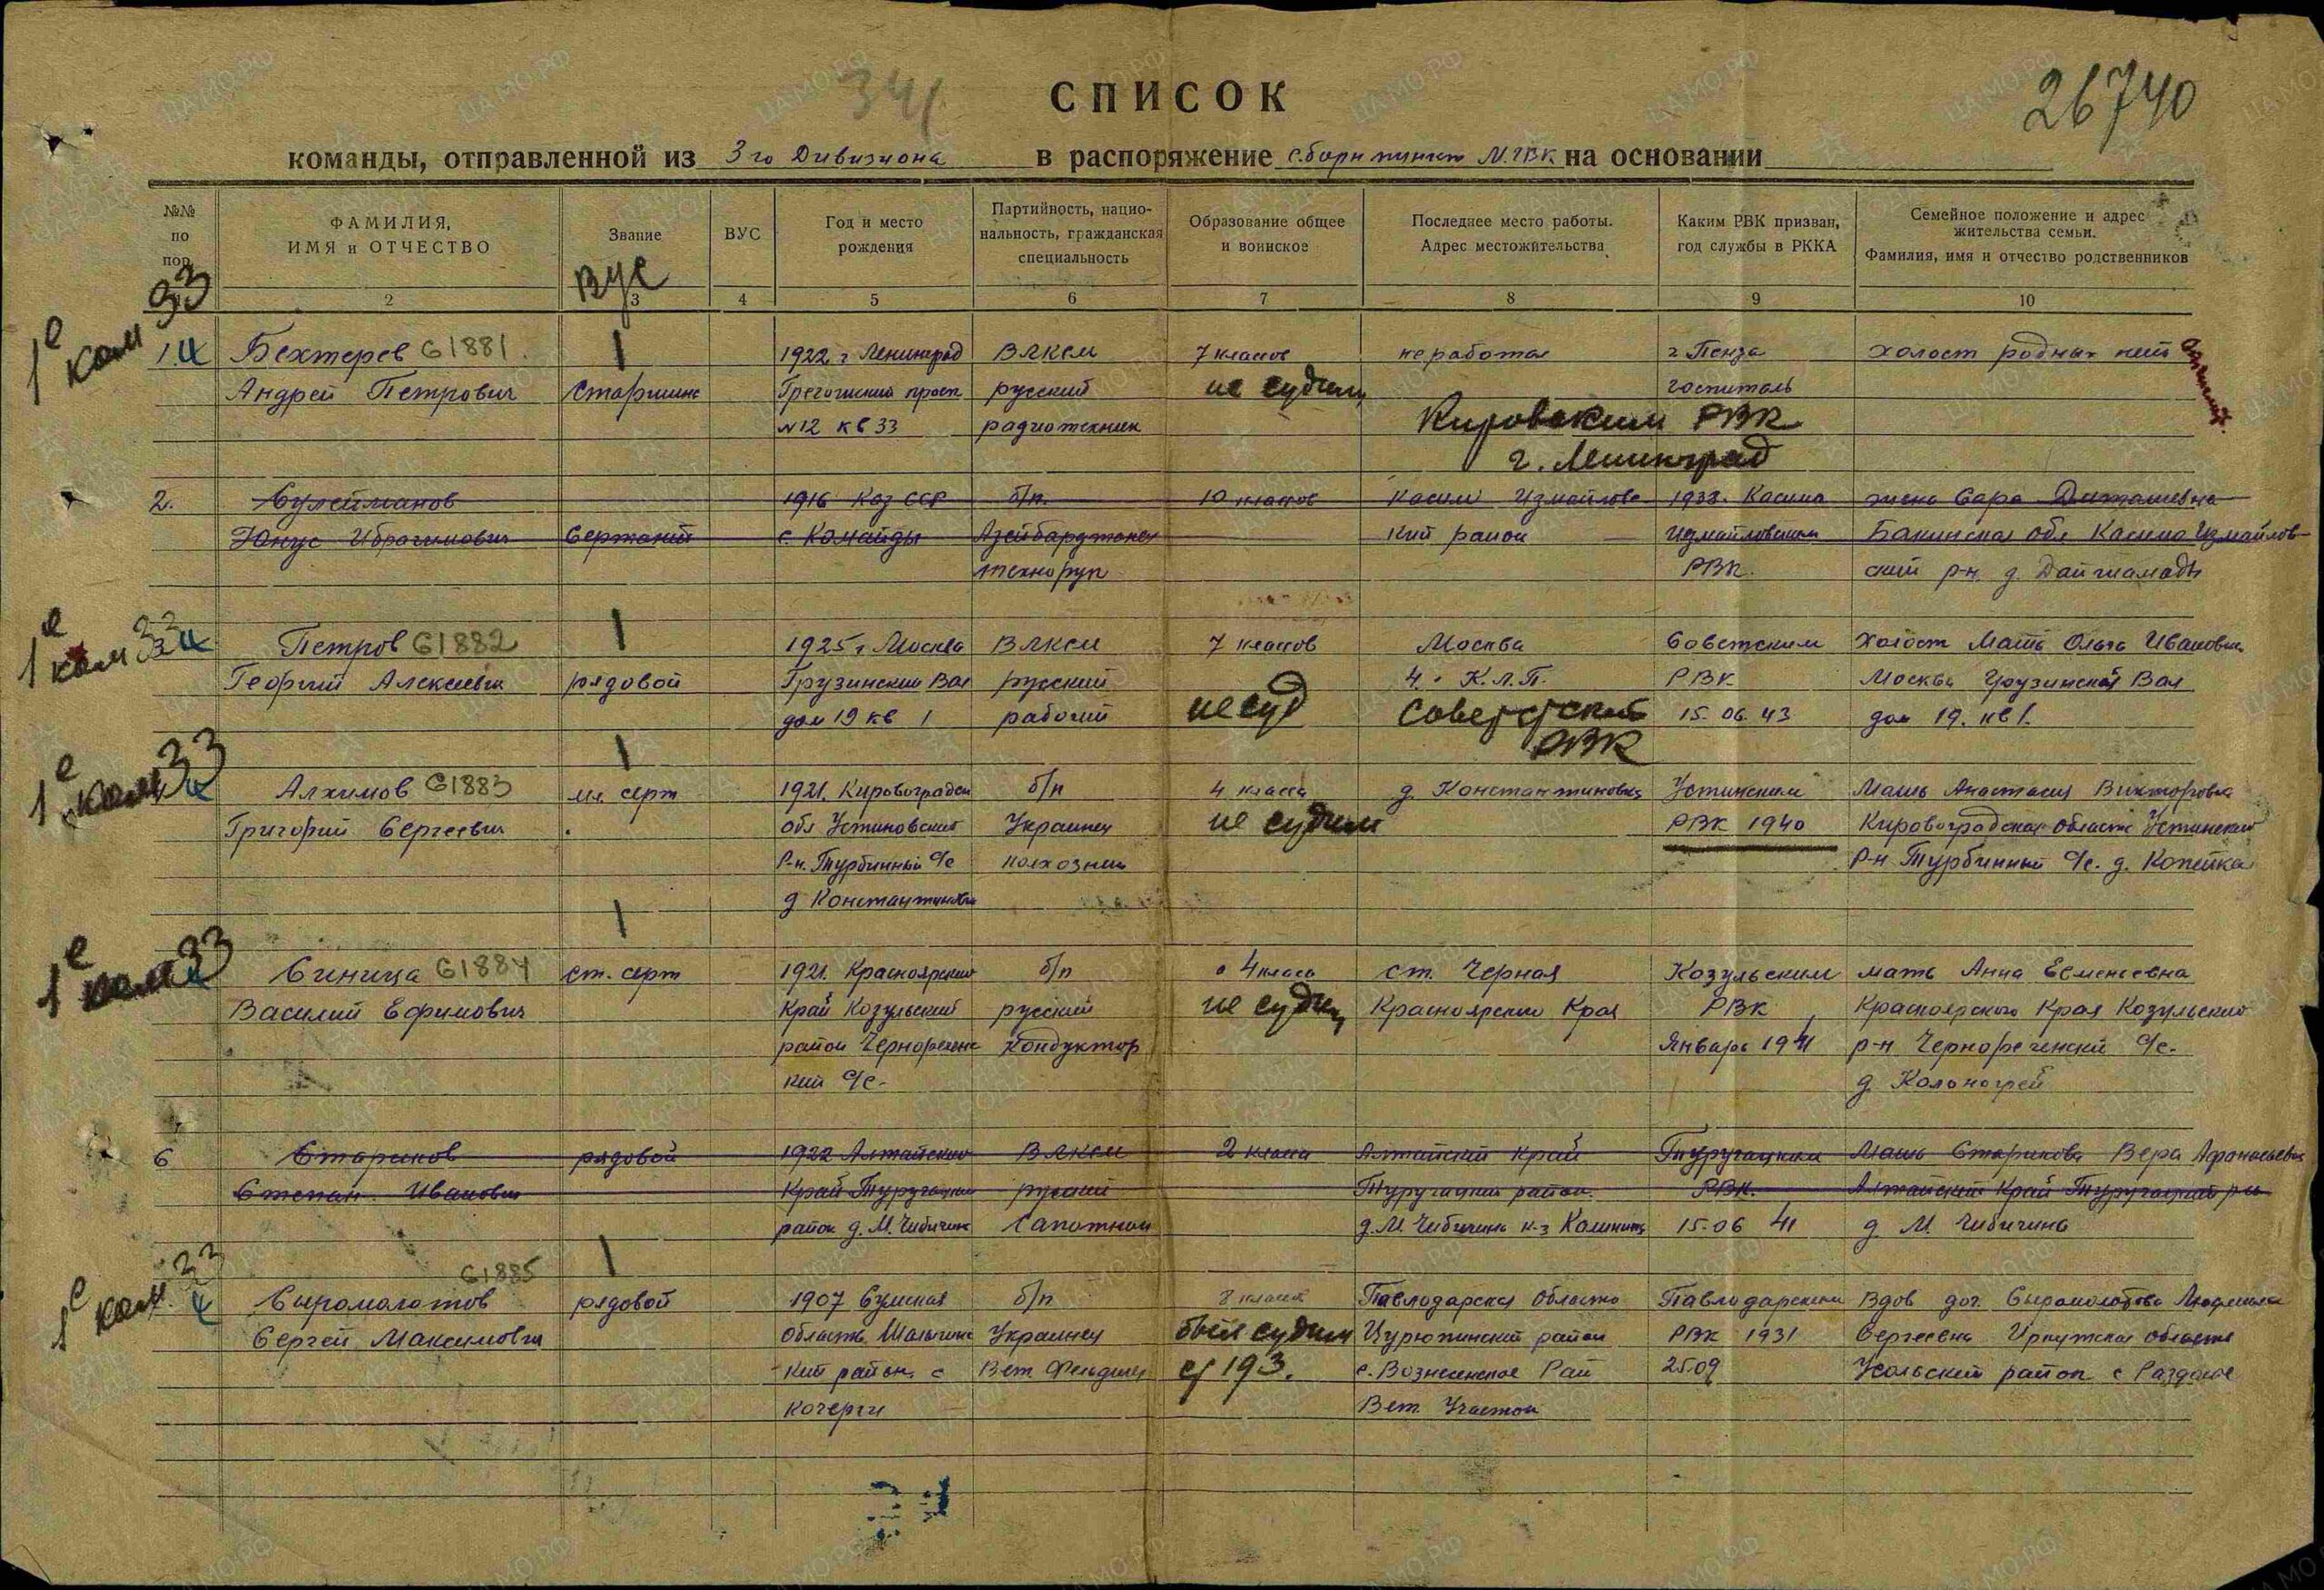 341
СПИСОК
26740
команды, отправленной из 3го Дивизиона в распоряжение сборн пункт М.ГВК на основании
№№ по пор.
ФАМИЛИЯ, ИМЯ и ОТЧЕСТВО
Звание
ВУС
Год и место рождения
Партийность, национальность, гражданская специальность
Образование общее и воинское
Последнее место работы. Адрес местожительства
Каким РВК призван, год службы в РККА
Семейное положение и адрес жительства семьи. Фамилия, имя и отчество родственников
ВУС
2 3 4 5 6 7 8 9 10
1е ком 33
1. Бехтерев 61881 1 1922 г Ленинград ВЛКСМ 7 классов не работал г Пенза холост родных нет
Андрей Петрович старшина просп русский не судим госпиталь
№12 кв 33 радиотехник Кировским РВК
г. Ленинград
2. Сулейманов 1916 Каз ССР б/п. 10 классов Касим Измайлово 1938. Касима жена Сара
Юнус Ибрагимович Сержант с. Комайды Азейбарджанец кий район Измайловским Бакинская обл Касима Измайлов
технорук РВК. ский р-н. д.
1е ком 33
Петров 61882 1 1925 г Москва ВЛКСМ 7 классов Москва Советским Холост Мать Ольга Ивановна
Георгий Алексеевич рядовой Грузинский Вал русский 4. К.Л.П. РВК Москва Грузинский Вал
дом 19 кв 1 рабочий не суд Советский 15.06.43 дом 19. кв 1.
РВК
1е ком 33
1
Алхимов 61883 мл. серж 1921. Кировоградск б/п 4 класса д. Константиновка Устинским Мать Анастасия Викторовна
Григорий Сергеевич обл Устиновский Украинец не судим РВК 1940 Кировоградская область Устинский
р-н. Турбинный с/с колхозник р-н Турбинный с/с. д. Копейка
д Константиновка
1е ком 33
1
Синица 61884 ст. серж 1921. Красноярский б/п 4 класс ст. Черная Козульским мать Анна Семеновна
Василий Ефимович Край Козульский русский не судим Красноярского Края РВК Красноярского Края Козульский
район Чернореченс кондуктор Январь 1941 р-н Чернореченский с/с.
кий с/с- д. Кологрей
6 Стариков рядовой 1922 Алтайский ВЛКСМ 2 класса Алтайский край Туругацким Мать Старикова Вера Афанасьевна
Степан Иванович Край Туругацкий русский Туругацкий район. РВК. Алтайский Край Туругацкий р-н
район д. М. Чибичина Сапожник д. М. Чибичина к-з Калинина 15-06 41 д М. Чибичина
1е ком 33
61885 1
7. Сыромолотов рядовой 1907 Сумская б/п 8 классов Павлодарская область Павлодарским Вдов доч. Сыромолотова Людмила
Сергей Максимович область Шалыгинс Украинец был судим Цурюпинский район РВК 1931 Сергеевна Иркутская область
кий район с Вет Фельдшер ст 193. с. Вознесенское Рай 25.09 Усольский район с Раздолье
Кочерги Вет. Участок
ЦАМО.РФ